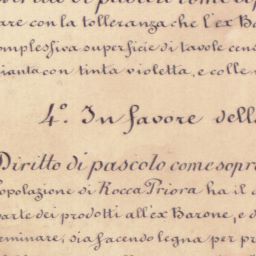 are con la tolleranza che l'ex Ba
omplessiva superficie di tavole cens
ianta con tinta violetta, e colle
4°. In favore dell
Diritto di pascolo come sopr
opolazione di Rocca Priora ha il
arte dei prodotti all'ex Barone, e d
eminare, sia facendo legna per pr